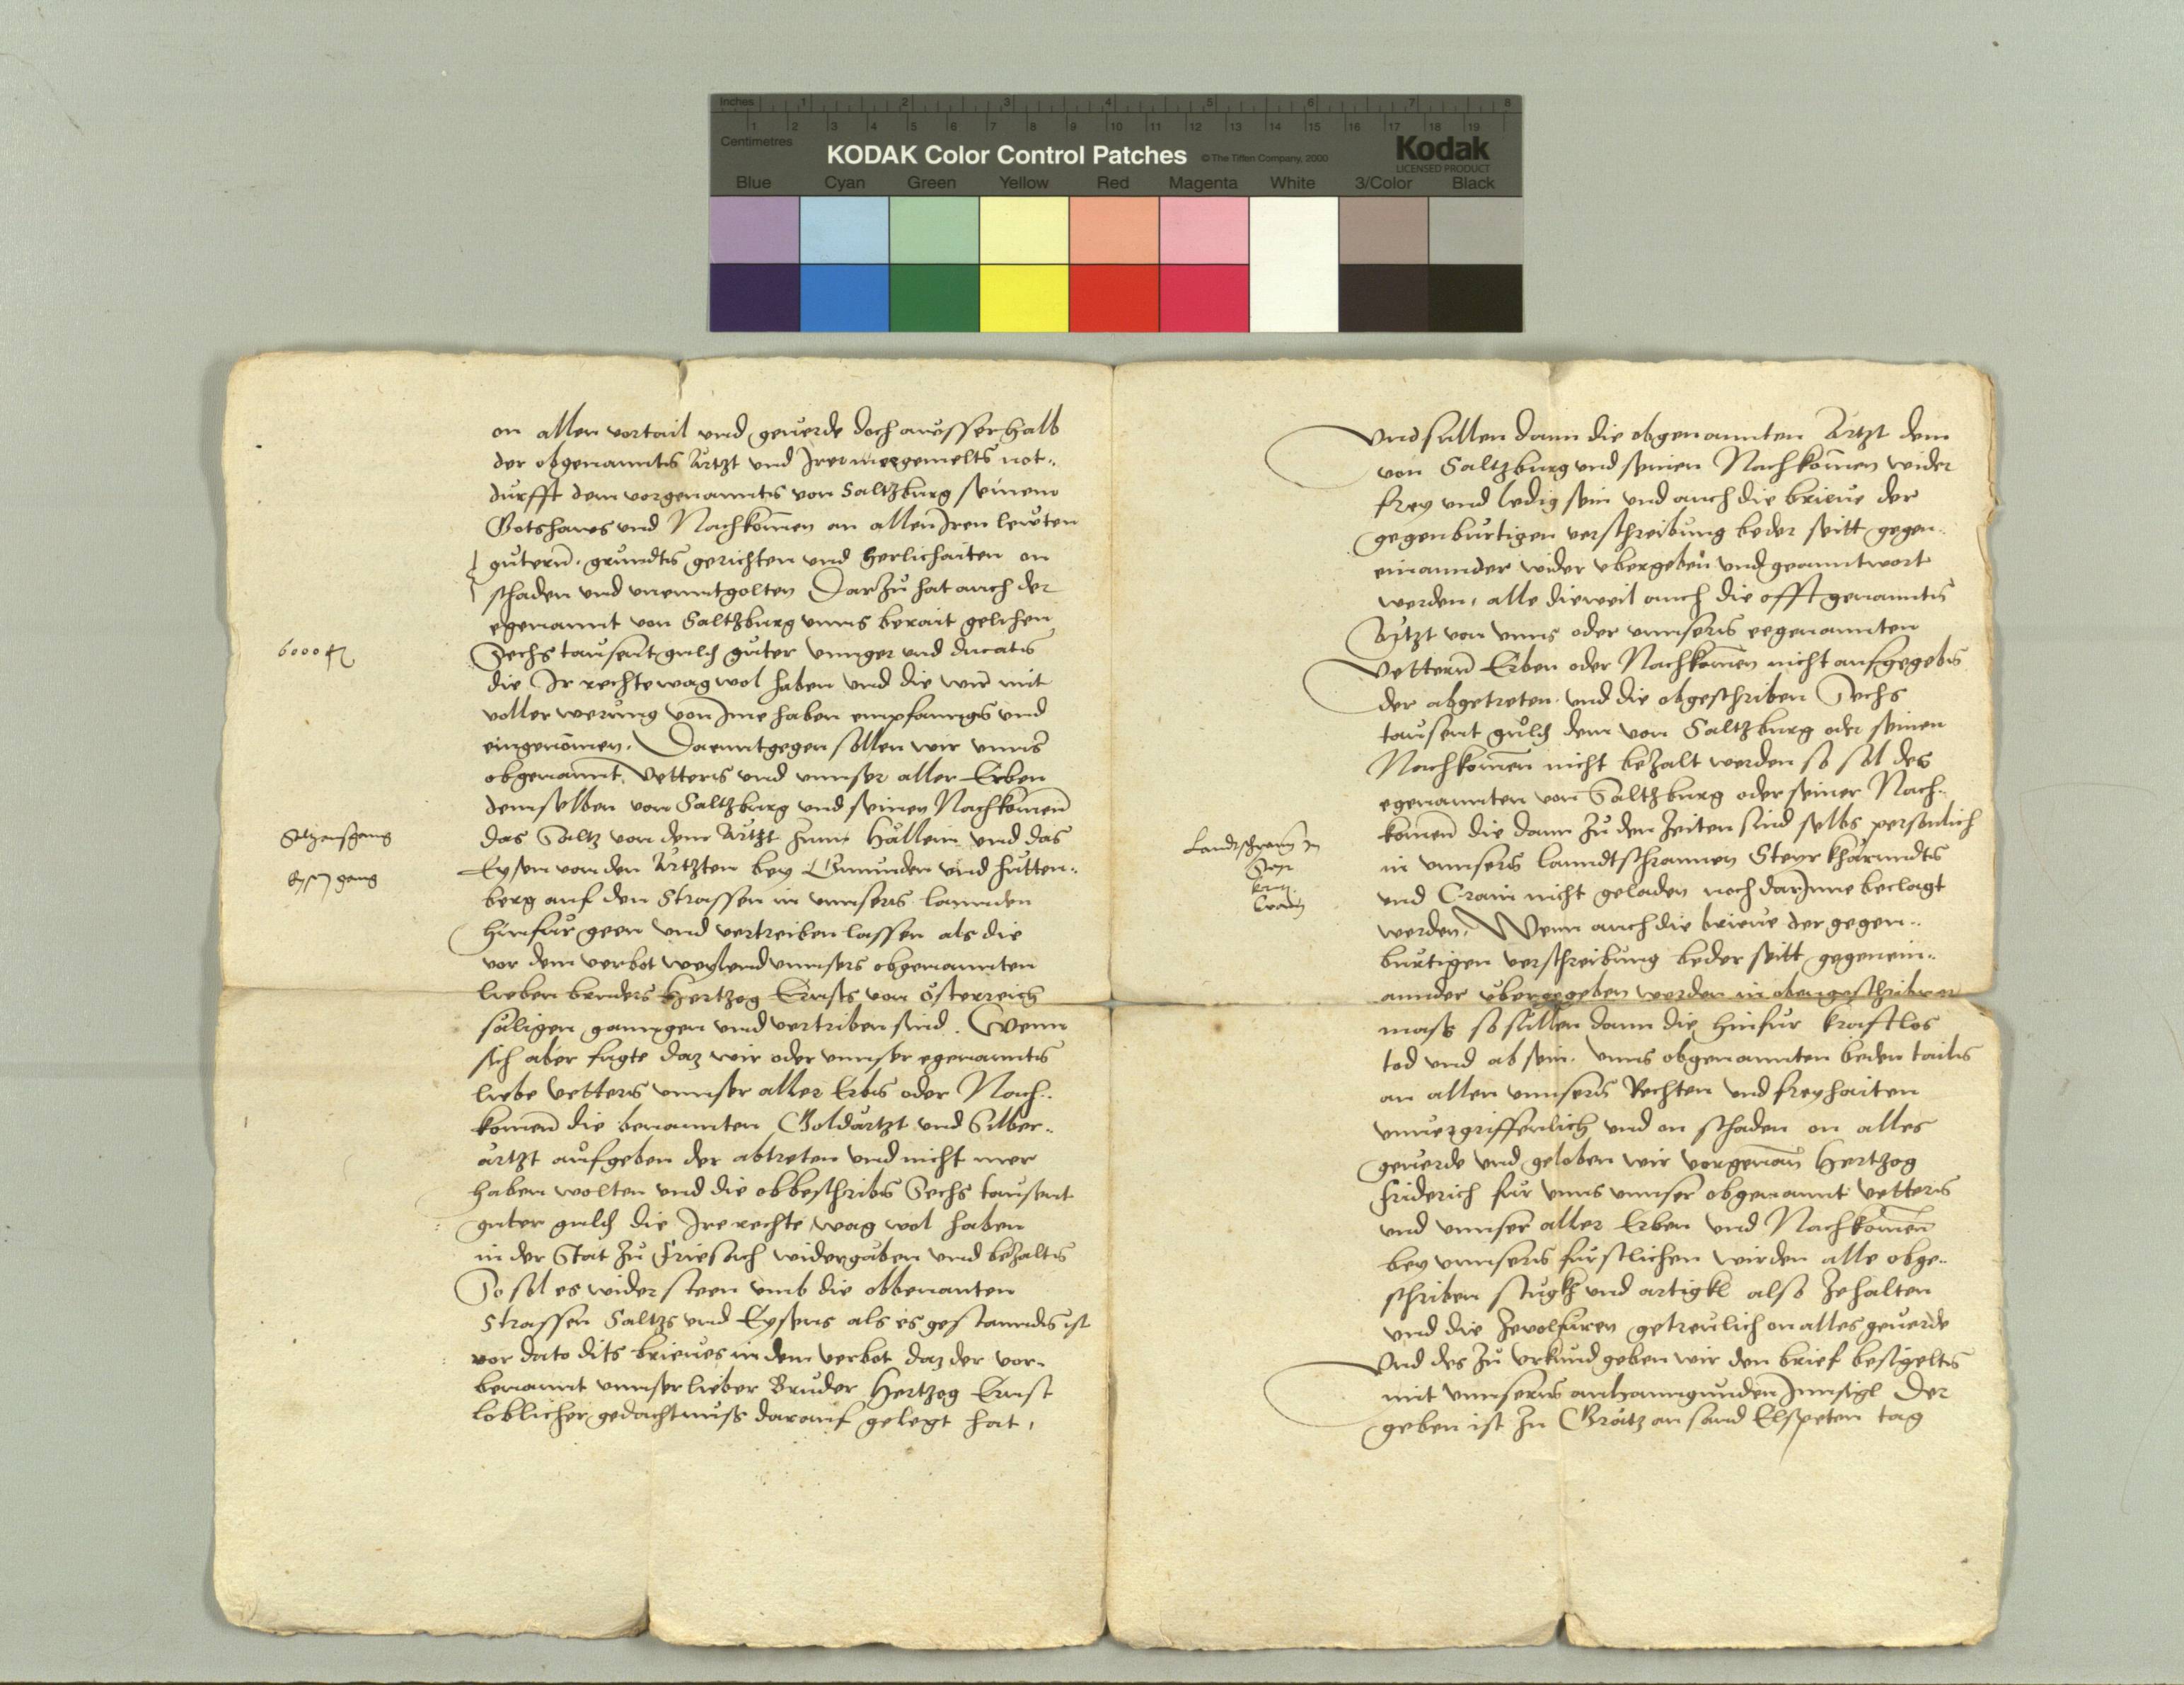 Inches 1 2 3 4 5 6 7 8
Centimetres 1 2 3 4 5 6 7 8 9 10 11 12 13 14 15 16 17 18 19
KODAK Color Control Patches © The Tiffen Company, 2000 Kodak
LICENSED PRODUCT
Blue Cyan Green Yellow Red Magenta White 3/Color Black
on allen vortail und geuerde doch ausserhalb
der obgenanntn Ärtzt und Irer megemelts not-
durfft dem vorgenanntn von Saltzburg seinem
Gotshaws und Nachkomen an allen Iren lewten
gutern, grundtn gerichten und herlichaiten on
schaden und unenntgolten Darzu hat auch der
egenannt von Saltzburg unns berait gelihen
6000
Sechs tausent guld guter unnger und ducatn
die Ir rechte wag wol haben und die wir mit
voller werung von Ime haben empfanngn und
eingenomen. Daenntgegen sollen wir unns
obgenannt Vettern und unnser aller Erben
demselben von Saltzburg und seinen Nachkomen
Saltzausgang
das Saltz von dem Ärtzt zum Hällein und das
Eysen gang
Eysen von den Ärtzten bey Gmunden und Hutten-
berg auf den Strassen in unnsern lannden
hinfur geen und vertreiben lassen als die
vor dem verbot weylend unnsers obgenannten
lieben bruders Hertzog Ernsts von Österreich
säligen ganngen und vertriben sind. Wenn
sich aber fugte daz wir oder unnser egenanntn
liebe vettern unnser aller Erbn oder Nach-
komen die benannten Goldärtzt und Silber-
ärtzt aufgeben der abtreten und nicht mer
haben wolten und die obbeschribn Sechs tausent
guter guld die Ire rechte wag wol haben
in der Stat zu Friesach widergaben und bezaltn
So sol es wider steen umb die obbenanten
Strassen Saltzs und Eysens als es gestanndn ist
vor dato dits brieues in dem verbot daz der vor-
benannt unnser lieber Bruder Hertzog Ernst
loblicher gedachtnuss darauf gelegt hat,
Und sullen dann die obgenannten Ärtzt dem
von Saltzburg und seinen Nachkomen wider
frey und ledig sein und auch die brieue der
gegenburtigen verschreibung beder seitt gegen-
einannder wider ubergeben und geanntwort
werden, alle dieweil auch die offtgenanntn
Ärtzt von unns oder unnsern egenannten
Vettern Erben oder Nachkomen nicht aufgegebn
der abgetreten, und die obgeschriben Sechs
tausent guld dem von Saltzburg oder seinen
Nachkomen nicht bezalt werden so sol des
egenannten von Saltzburg oder seiner Nach-
komen die dann zu den zeiten sind selbs personlich
Landtschrann in
Steyr
Crain
in unnsern lanndtschrannen Steyr Khärnndtn
und Crain nicht geladen noch darInne beclagt
werden. Wenn auch die brieue der gegen-
burtigen verschreibung beder seitt gegenein-
annder ubergegeben werden in obengeschribner
mass so sullen dann die hinfur kraftlos
tod und ab sein, unns obgenannten beden tailn
an allen unnsern Rechten und freyhaiten
unuergriffenlich und on schaden on alles
geuerde und geloben wir vorgenan Hertzog
Friderich fur unns unnser obgenannt vettern
und unnser aller Erben und Nachkomen
bey unnsern furstlichen wirden alle obge-
schriben stugkh und artigkl also zehalten
und die zeuolfuren getreulich on alles geuerde
Und des zu urkund geben wir den brief besigeltn
mit unnserm anhanngunden Innsigl Der
geben ist zu Grätz an sand Elspeten tag